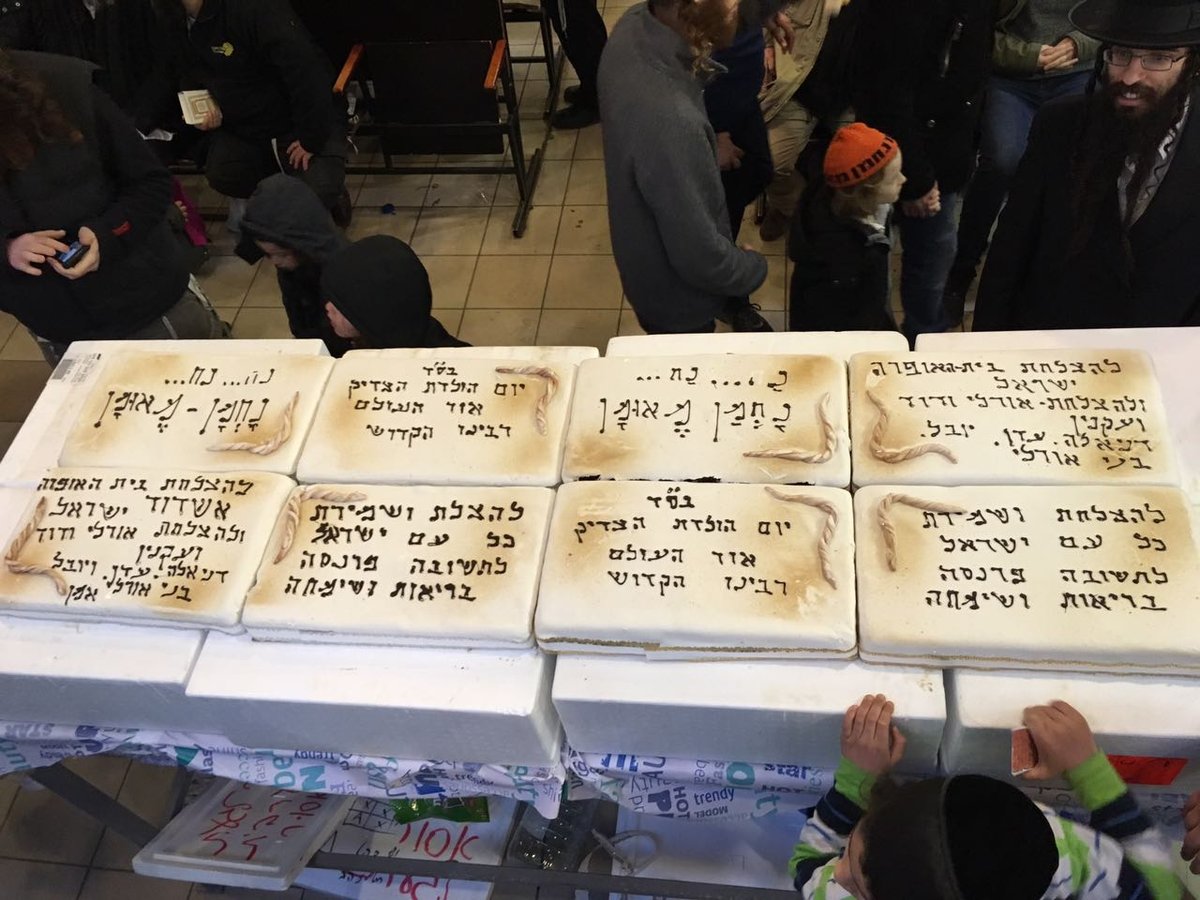 להצלחת בית-האופרה
ישראל
ולהצלחת-אורלי ודוד
ועקנין
דניאלה. עדן. יובל.
בני אורלי
נַ ... נַח ...
נַחְמָן מְאוּמָן
בס"ד
יום הולדת הצדיק
אור העולם
רבינו הקדוש
נה... נח...
נַחְמָן - מְאוּמָן
להצלחת ושמירת
כל עם ישראל
לתשובה פרנסה
בריאות ושימחה
בס"ד
יום הולדת הצדיק
אור העולם
רבינו הקדוש
להצלת ושמירת
כל עם ישראל
לתשובה פרנסה
בריאות ושימחה
להצלחת בית האופה
אשדוד ישראל
ולהצלחת אורלי ודוד
ועקנין
דניאלה. עדן. ויובל
בני אורלי אמן
trendy
HOT
trendy